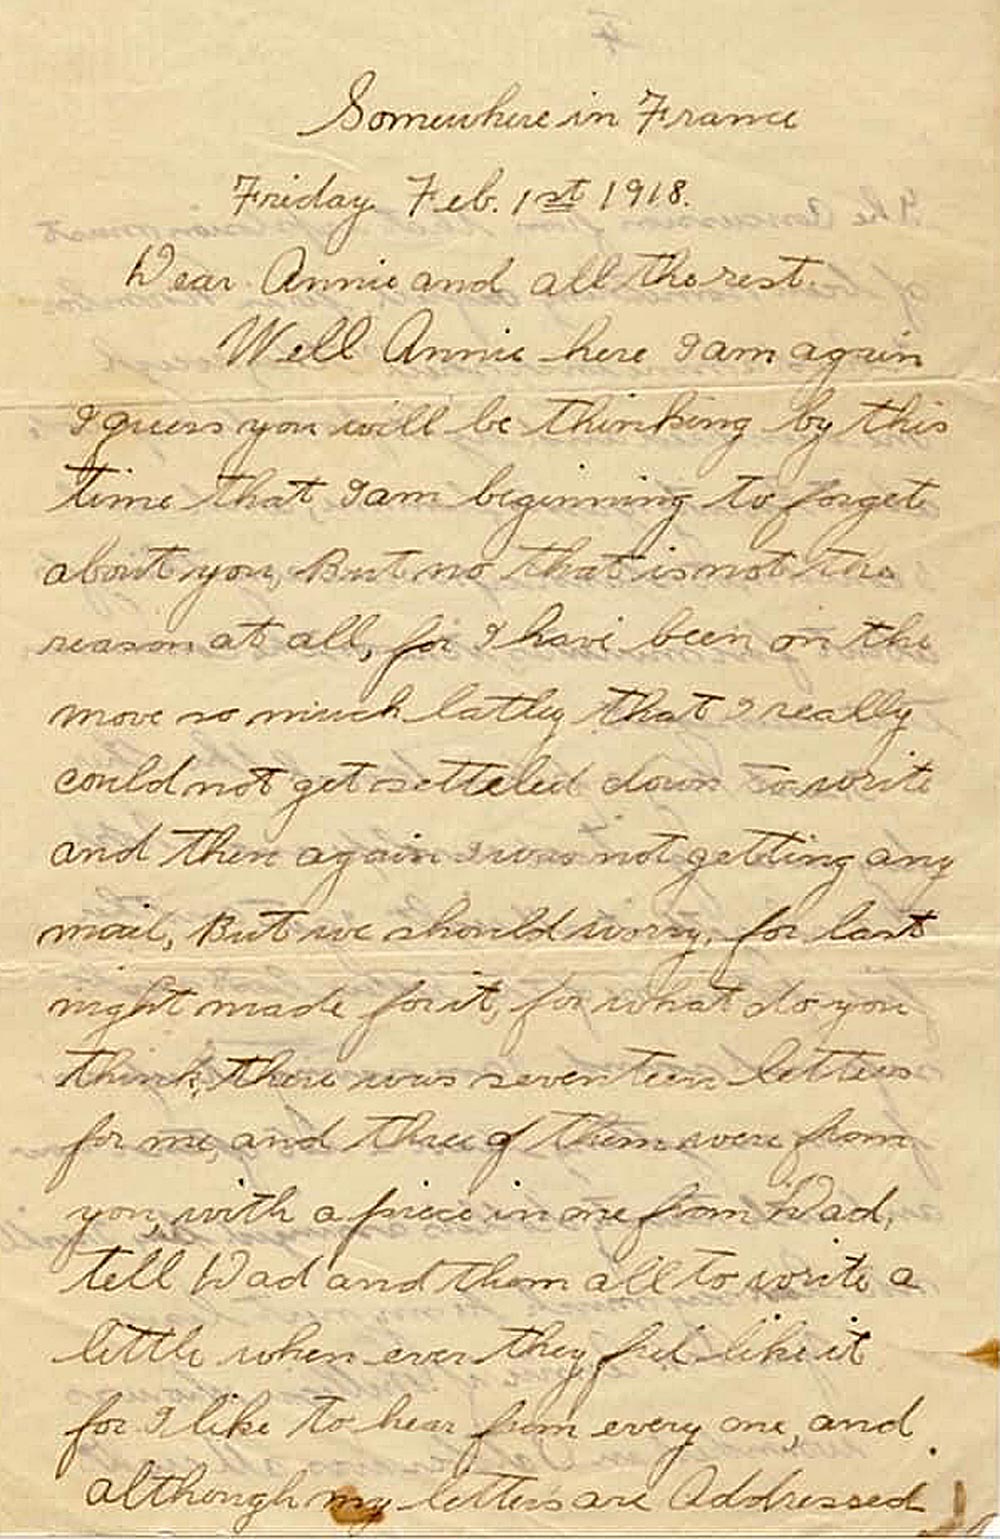 Somewhere in France
Friday. Feb. 1st 1918.
Dear Annie and all the rest.
Well Annie here I am again
I guess you will be thinking by this
time that I am beginning to forget
about you, But no that is not the
reason at all, for I have been on the
move so much latley that I really
could not get setteled down to write
and then again I was not getting any
mail, But we should worry, for last
night made for it, for what do you
think, there was seventeen letters
for me, and three of them were from
you, with a piece in one from Dad,
tell Dad and them all to write a
little when ever they feel like it
for I like to hear from every one, and
although my letters are Addressed